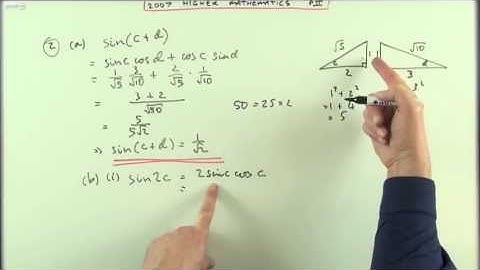 2007 HIGHER MATHEMATICS PII
② (a) sin(c+d)
= sinc cosd + cosc sind
= 1/√5 · 3/√10 + 2/√5 · 1/√10
= 3+2/√50
= 5/5√2
50 = 25 × 2
⇒ sin(c+d) = 1/√2
(b) (i) sin2c = 2sinc cosc
=
√5 1 1 √10
c d
2 3
1² + 2²
= 1 + 4
= 5